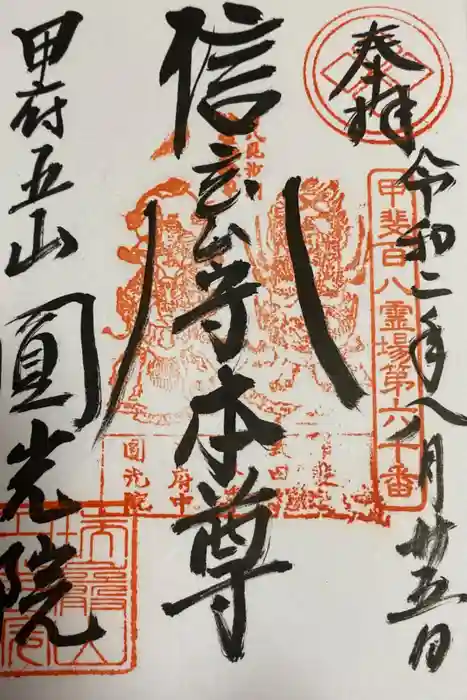 奉拝
令和二年八月廿五日
甲斐百八霊場第六十番
信玄公守本尊
甲府五山
圓光院